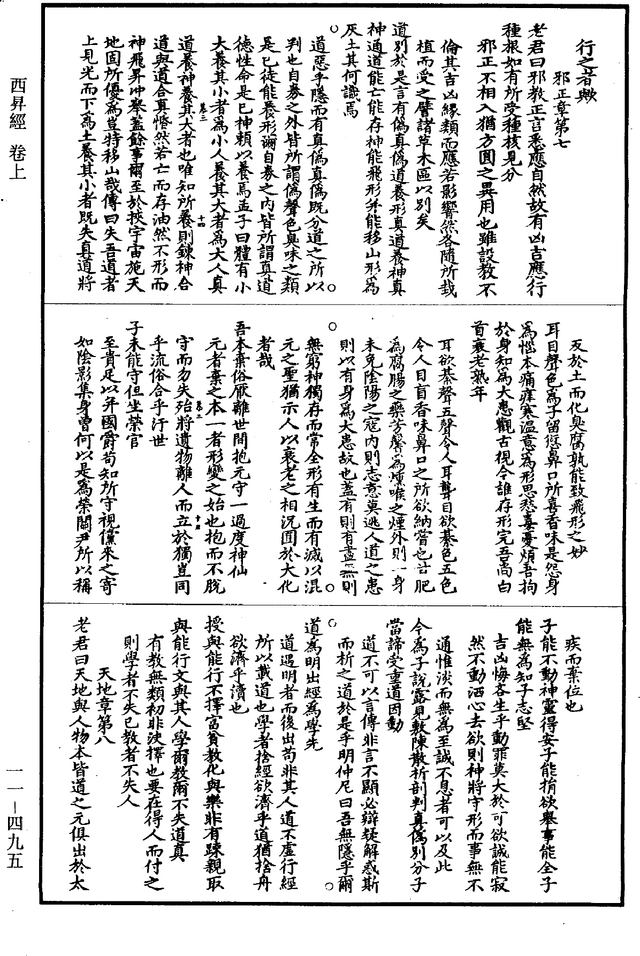 西昇經 卷上
一一—四九五
行之者歟
邪正章第七
老君曰邪教正言悉應自然故有凶吉應行
種根如有所受種核見分
邪正不相入猶方圓之異用也雖設教不
倫其吉凶緣類而應若影響然各隨所栽
植而受之譬諸草木區以別矣
道別於是言有偽真偽道養形真道養神真
神通道能亡能存神能飛形并能移山形為
灰土其何識焉
道惡乎隱而有真偽真偽既分道之所以
判也自券之外皆所謂偽聲色臭味之類
是已徒能養形彌自券之內皆所謂真道
德性命是已神賴以養焉孟子曰體有小
大養其小者為小人養其大者為大人真
卷三
十四
道養神養其大者也唯知所養則鍊神合
道與道合真憺然若亡而存油然不形而
神飛昇沖舉蓋餘事爾至於挾宇宙施天
地固所優為豈特移山哉傳曰失吾道者
上見光而下為土養其小者既失真道將
反於土而化臭腐孰能致飛形之妙
耳目聲色為子留愆鼻口所喜香味是怨身
為惱本痛痒寒溫意為形思愁毒憂煩吾拘
於身知為大患觀古視今誰存形完吾尚白
首衰老孰年
耳欲綦聲五聲令人耳聾目欲綦色五色
令人目盲香味鼻口之所欲納嘗也甘肥
為腐腸之藥芳馨為燻喉之煙外則一身
未免陰陽之寇內則志意莫逃人道之患
則以有身為大患故也蓋有則有盡無則
無窮神獨存而常全形有生而有滅以混
元之聖猶示人以衰老之相況囿於大化
者哉
吾本棄俗厭離世間抱元守一過度神仙
元者氣之本一者形變之始也抱而不脫
卷三
十五
守而勿失殆將遺物離人而立於獨豈同
乎流俗合乎汙世
子未能守但坐榮官
至貴足以并國爵苟知所守視儻來之寄
如陰影集身曾何以是為榮關尹所以稱
疾而棄位也
子能不動神靈得安子能捐欲舉事能全子
能無為知子志堅
吉凶悔吝生乎動罪莫大於可欲誠能寂
然不動洒心去欲則神將守形而事無不
通惟淡而無為至誠不息者可以及此
今為子說露見敷陳散析剖判真偽別分子
當諦受重道因動
道不可以言傳非言不顯必辯疑解惑斯
而析之道於是乎明仲尼曰吾無隱乎爾
道為明出經為學先
道遇明者而後出苟非其人道不虛行經
所以載道也學者捨經欲濟乎道猶捨舟
欲濟乎瀆也
授與能行不擇富貧教化與樂非有疎親取
與能行文與其人學爾教爾不失道真
有教無類初非決擇也要在得人而付之
則學者不失已教者不失人
天地章第八
老君曰天地與人物本皆道之元俱出於太